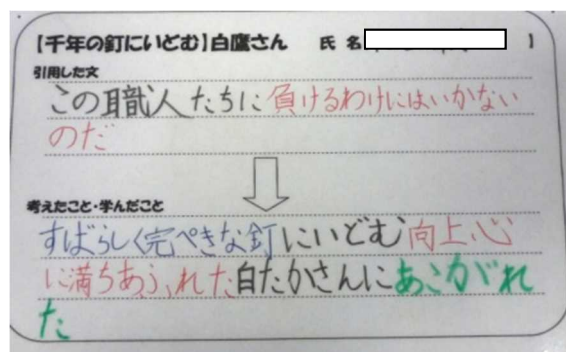 【千年の釘にいどむ】白鷹さん 氏 名 】
引用した文
この職人たちに負けるわけにはいかない
のだ
考えたこと・学んだこと
すばらしく完ぺきな釘にいどむ向上心
に満ちあふれた白たかさんにあこがれ
た